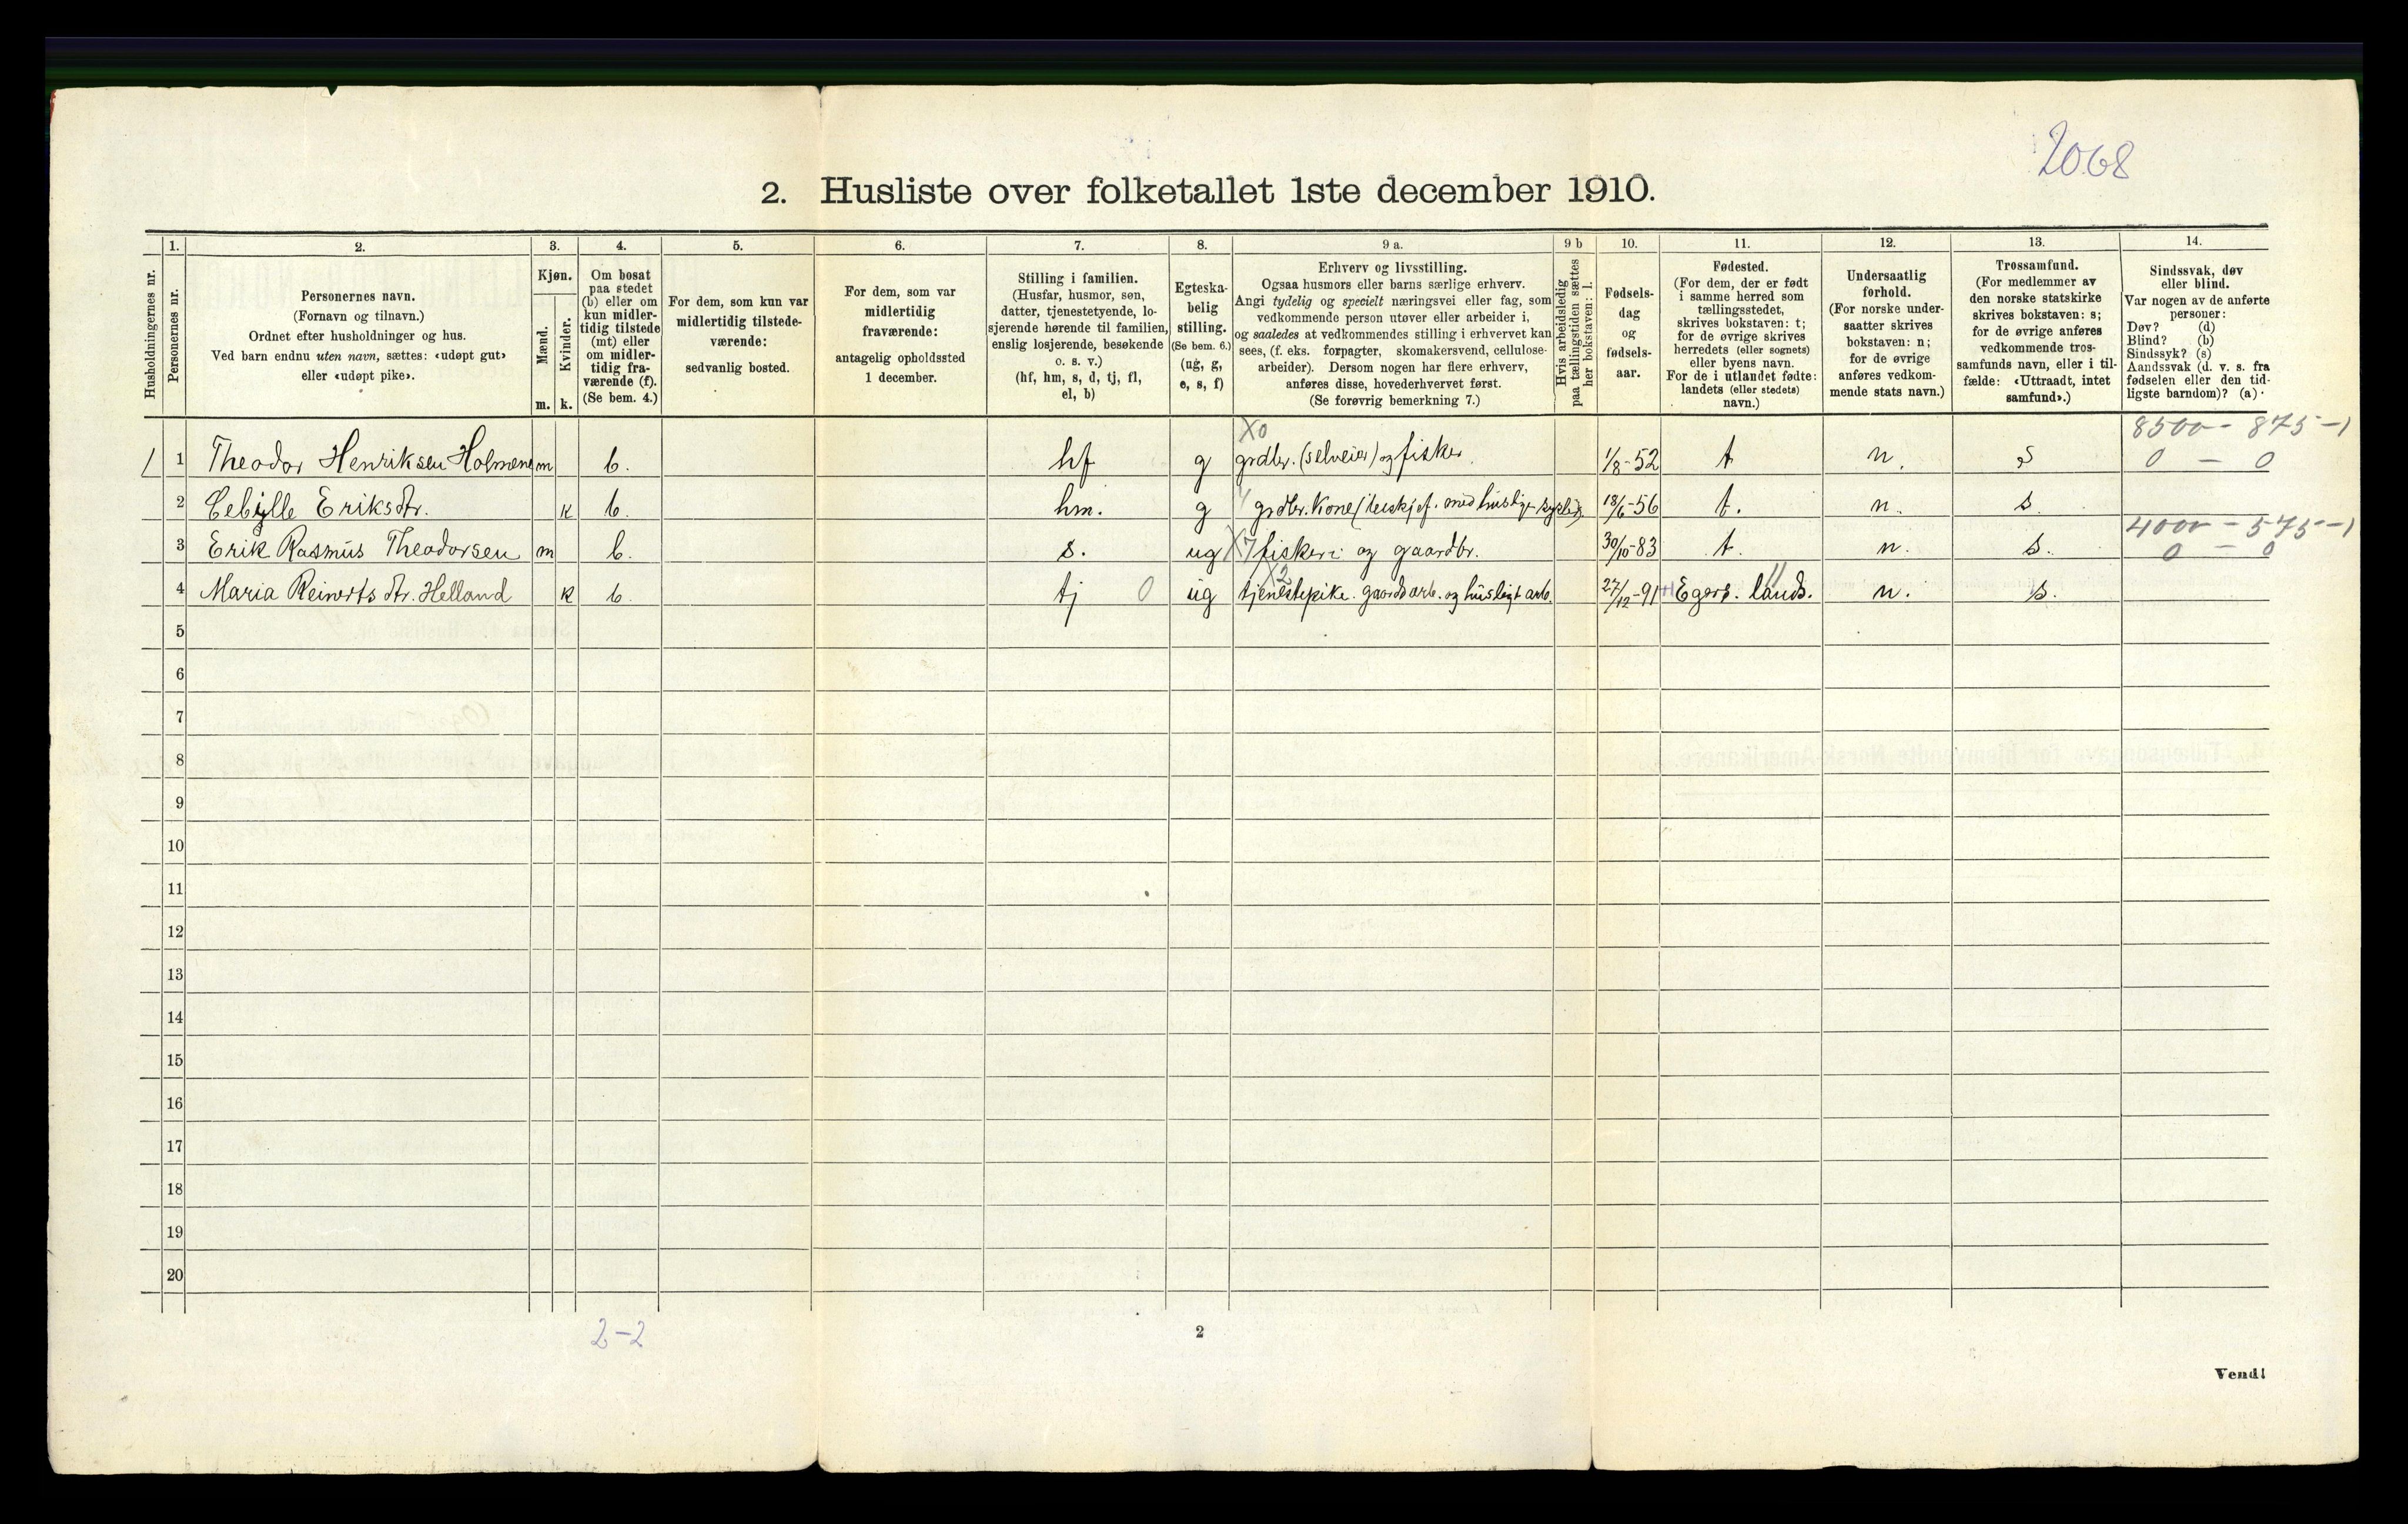 2068
2. Husliste over folketallet 1ste december 1910.
Husholdningernes nr.
1.
Personernes nr.
2.
Personernes navn.
(Fornavn og tilnavn.)
Ordnet efter husholdninger og hus.
Ved barn endnu uten navn, sættes: «udøpt gut»
eller «udøpt pike».
3.
Kjøn.
Mænd.
Kvinder.
m. k.
4.
Om bosat
paa stedet
(b) eller om
kun midler-
tidig tilstede
(mt) eller
om midler-
tidig fra-
værende (f).
(Se bem. 4.)
5.
For dem, som kun var
midlertidig tilstede-
værende:
sedvanlig bosted.
6.
For dem, som var
midlertidig
fraværende:
antagelig opholdssted
1 december.
7.
Stilling i familien.
(Husfar, husmor, søn,
datter, tjenestetyende, lo-
sjerende hørende til familien,
enslig losjerende, besøkende
o. s. v.)
(hf, hm, s, d, tj, fl,
el, b)
8.
Egteska-
belig
stilling.
(Se bem. 6.)
(ug, g,
e, s, f)
9 a.
Erhverv og livsstilling.
Ogsaa husmors eller barns særlige erhverv.
Angi tydelig og specielt næringsvei eller fag, som
vedkommende person utøver eller arbeider i,
og saaledes at vedkommendes stilling i erhvervet kan
sees, (f. eks. forpagter, skomakersvend, cellulose-
arbeider). Dersom nogen har flere erhverv,
anføres disse, hovederhvervet først.
(Se forøvrig bemerkning 7.)
9 b
Hvis arbeidsledig
paa tællingstiden sættes
her bokstaven: l.
10.
Fødsels-
dag
og
fødsels-
aar.
11.
Fødested.
(For dem, der er født
i samme herred som
tællingsstedet,
skrives bokstaven: t;
for de øvrige skrives
herredets (eller sognets)
eller byens navn.
For de i utlandet fødte:
landets (eller stedets)
navn.)
12.
Undersaatlig
forhold.
(For norske under-
saatter skrives
bokstaven: n;
for de øvrige
anføres vedkom-
mende stats navn.)
13.
Trossamfund.
(For medlemmer av
den norske statskirke
skrives bokstaven: s;
for de øvrige anføres
vedkommende tros-
samfunds navn, eller i til-
fælde: «Uttraadt, intet
samfund».)
14.
Sindssvak, døv
eller blind.
Var nogen av de anførte
personer:
Døv? (d)
Blind? (b)
Sindssyk? (s)
Aandssvak (d. v. s. fra
fødselen eller den tid-
ligste barndom)? (a).
X0 8500 - 875 - 1
1 1 Theodor Henriksen Holmene m b. hf g grdbr. (selveier) og fisker 1/8-52 t n. s 0 - 0
2 Cebylle Eriksdtr. k b. hm. g grdbr. kone 18/6-56 t. n. s.
4000 - 575 - 1
3 Erik Rasmus Theodorsen m b. s. ug X7 fiskeri og gaardbr. 30/10-83 t. n. s. 0 - 0
X2
4 Maria Reinertsdtr. Helland k b. tj 0 ug tjenestepike. gaardsarb. og husligt arb. 27/12-91 Egers. lands. n. s.
5
6
7
8
9
10
11
12
13
14
15
16
17
18
19
20
2-2
2
Vend!